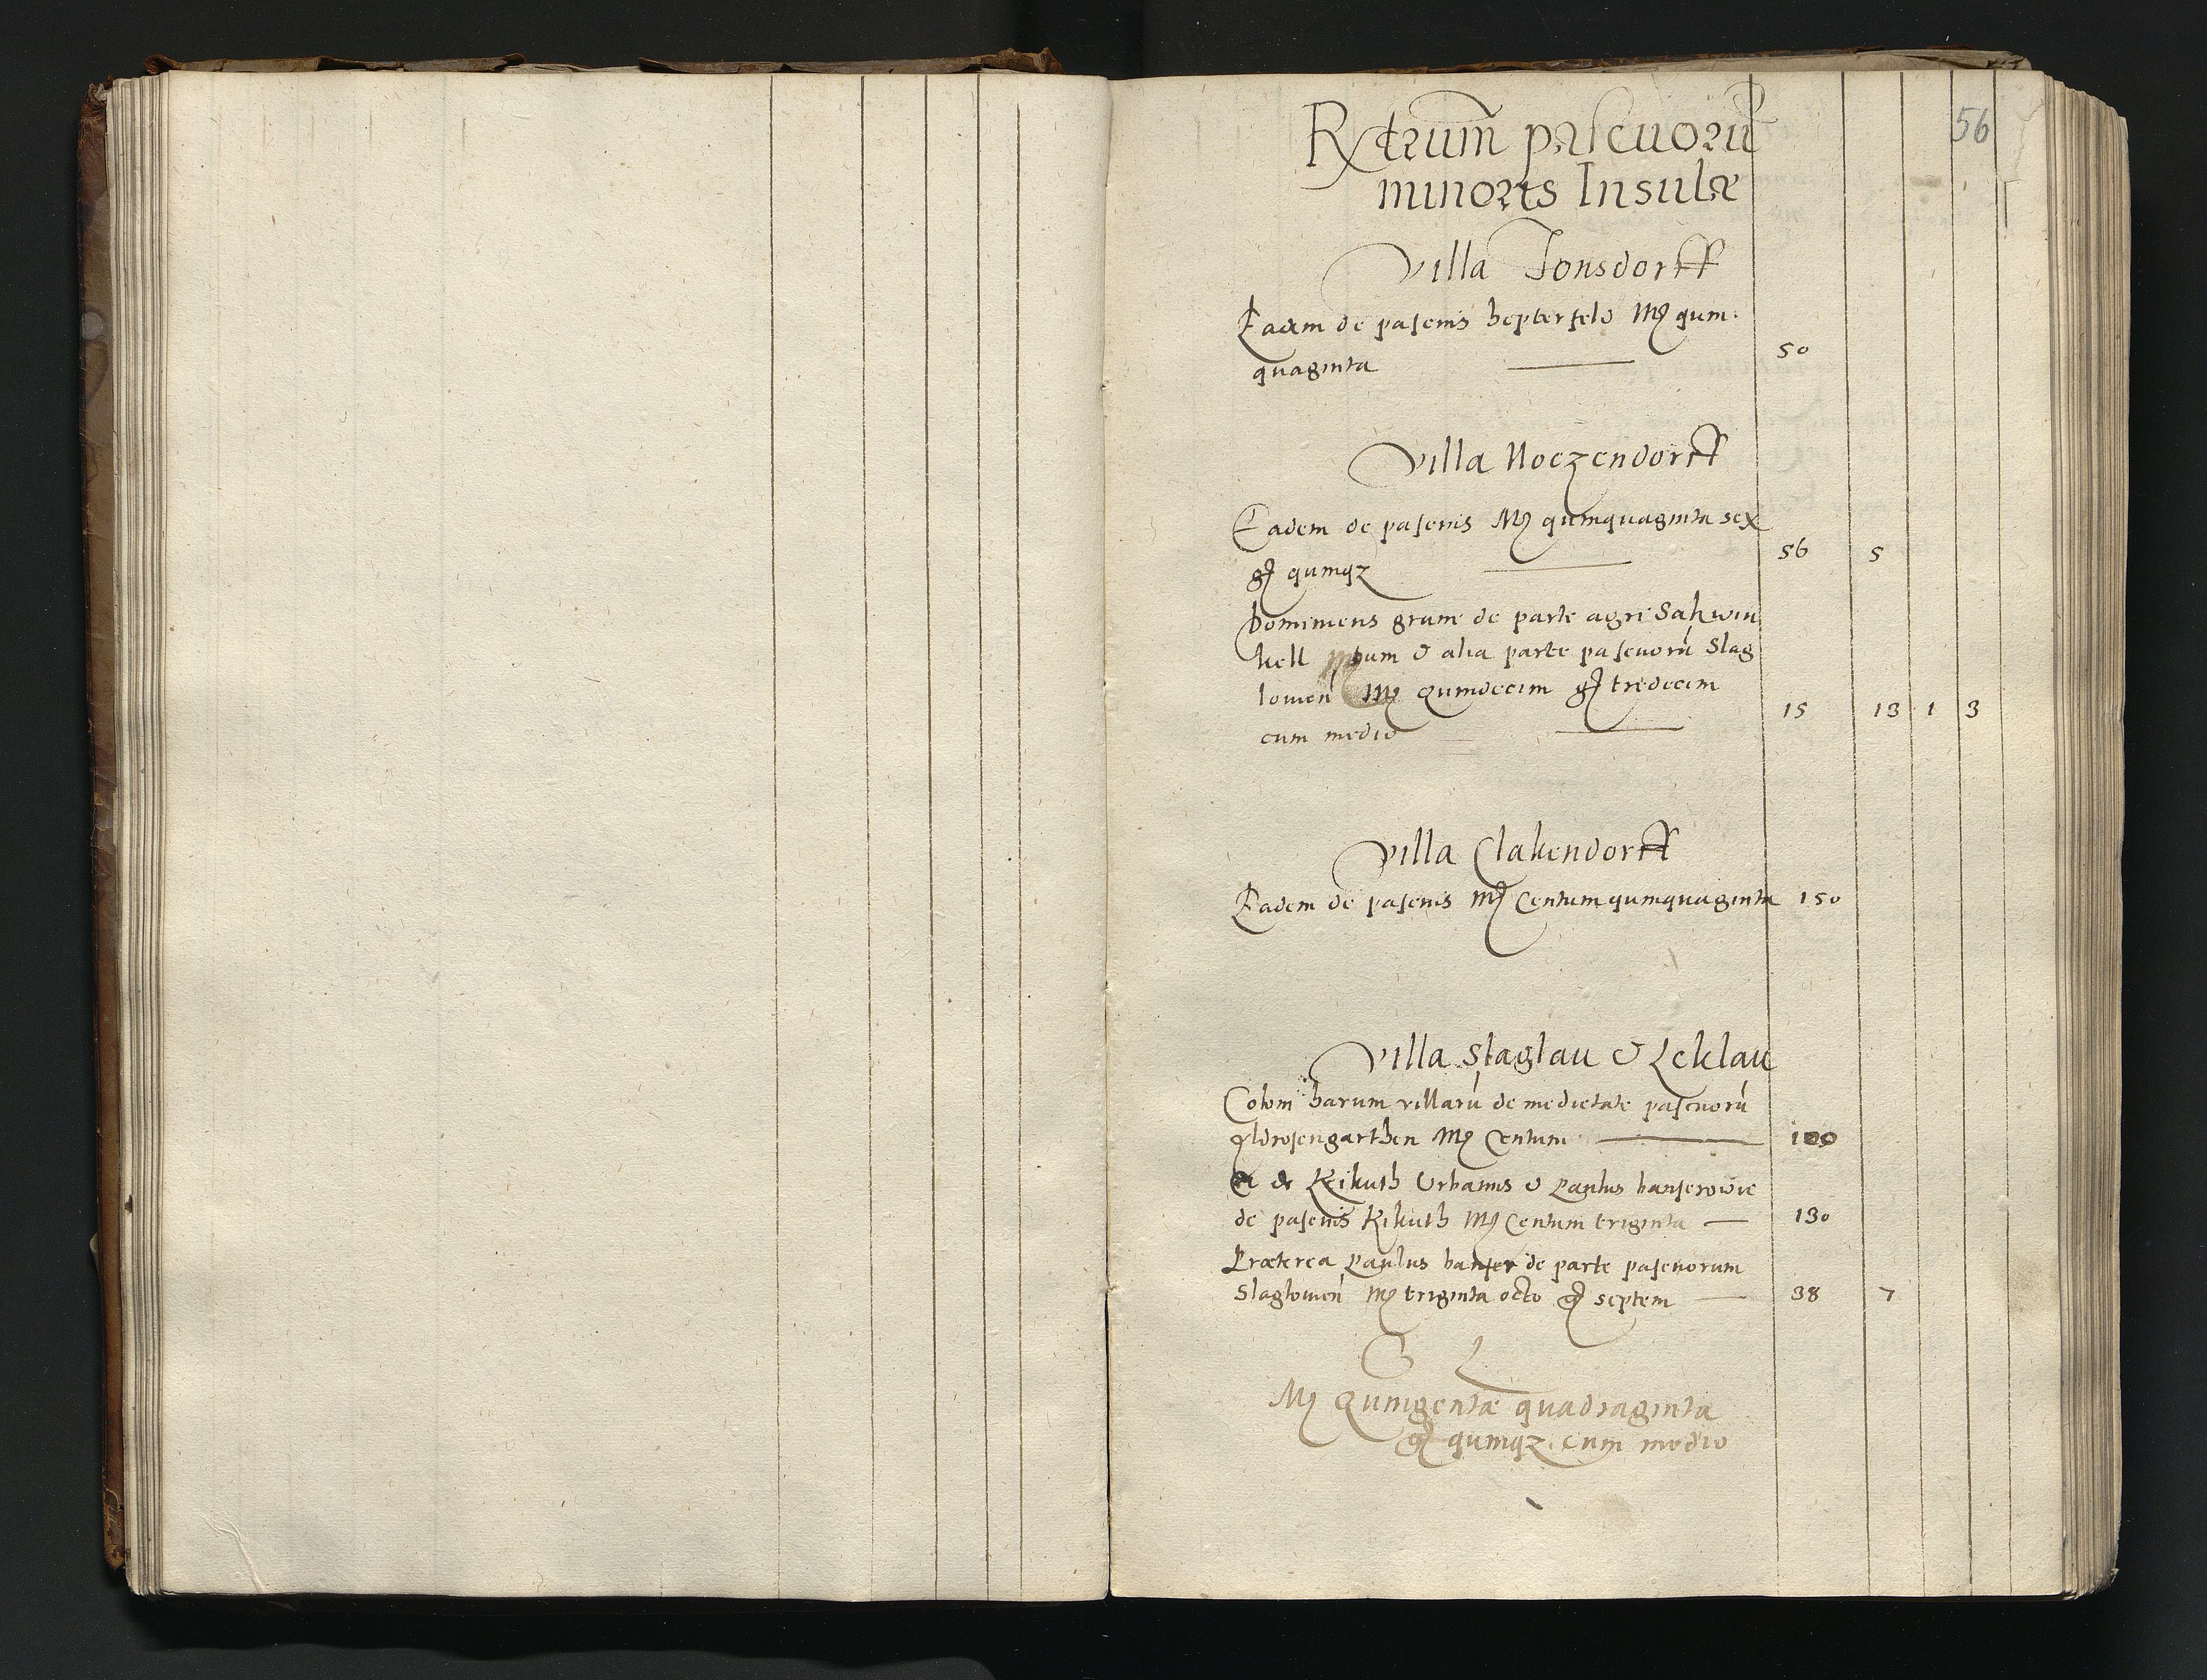 56
Rx trium pascuorū
minoris Insulæ
Villa Jonsdorff
Eadem de pascuis hepterfeld Mͬ quin-
quaginta 50
Villa Noezendorff
Eadem de pascuis Mͬ quinquaginta sex
gͬ quinqȝ 56 5
Dominicus grune de parte agri Sahwin
kell et alia parte pascuorū Slag
lowen̄ Mͬ Quindecim gͬ tredecim
cum medio 15 13 1 3
Villa Clakendorff
Eadem de pascuis Mͬ Centum quinquaginta 150
Villa Slaglau & Leklau
Coloni harum villarū de medietate pascuorū
Mͬ Centum 100
de Kikuth Urbanus & Paulus
de pascuis Kikuth Mͬ Centum triginta 130
Præterea Paulus hanser de parte pascuorum
Slaglowen̄ Mͬ triginta octo gͬ septem 38 7
Mͬ Quingentæ quadraginta
gͬ quinqȝ cum medio